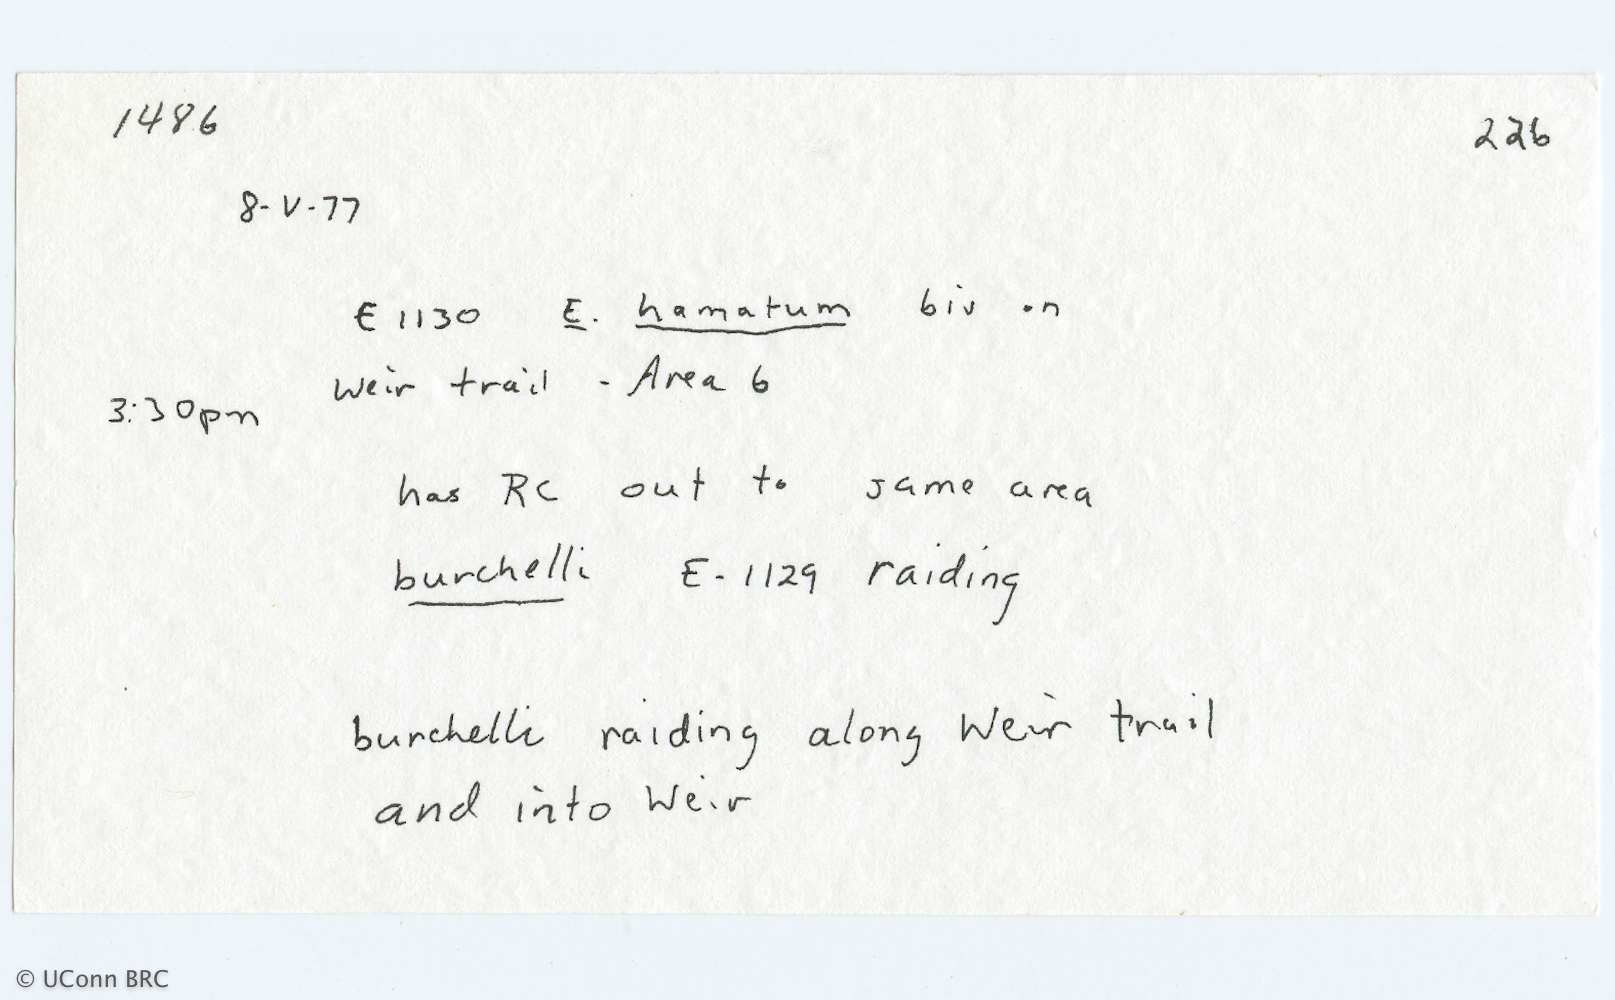 1486
226
8-V-77
E1130 E. hamatum biv on
Weir trail - Area 6
3:30pm
has RC out to same area
burchelli E-1129 raiding
burchelli raiding along Weir trail
and into Weir
© UConn BRC